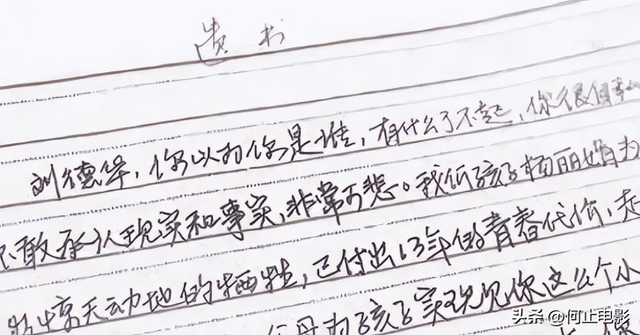 遗书
刘德华，你以为你是谁，有什么了不起，你很自
不敢承认现实和事实，非常可悲。我低孩子杨丽娟自为
惊天动地的牺牲，已付出13年的青春代价，走
父母为孩子实现见你这么个小
头条 @何止电影